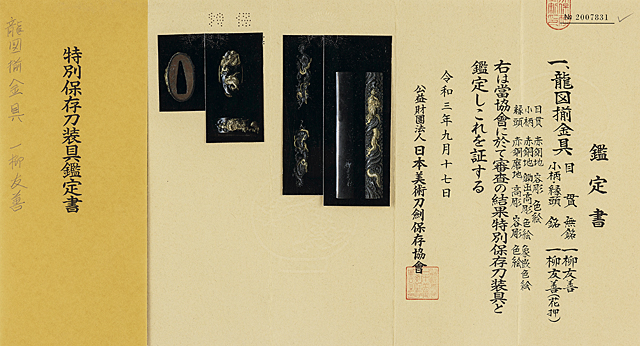 № 2007831
鑑定書
一、龍図揃金具 目貫 無銘 一柳友善
小柄縁頭 銘 一柳友善(花押)
目貫 赤銅地 容彫 色絵
小柄 赤銅地 鋤出高彫 色絵 象嵌色絵
縁頭 赤銅磨地 高彫 容彫 色絵
右は當協會に於て審査の結果特別保存刀装具と
鑑定しこれを証する
令和三年九月十七日
公益財團法人 日本美術刀剣保存協會
特別保存刀装具鑑定書
龍図揃金具 一柳友善